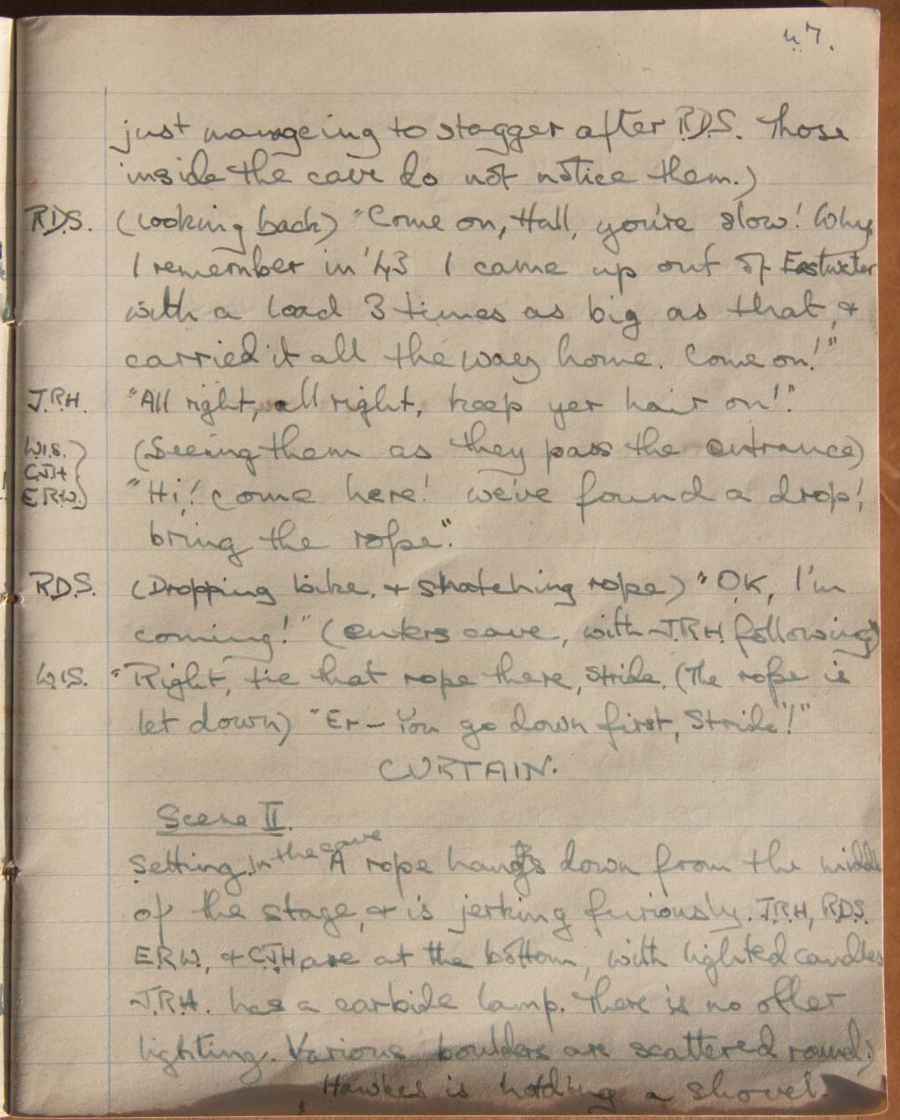 47.
just manageing to stagger after R.D.S. Those
inside the cave do not notice them.)
R.D.S. (Looking back) "Come on, Hall, you're slow! Why
I remember in '43 I came up out of Eastwater
with a load 3 times as big as that, &
carried it all the way home. Come on!"
J.R.H. "All right, all right, keep yer hair on!".
W.I.S. (Seeing them as they pass the entrance)
CJH
E.R.W. "Hi! come here! we've found a drop!
bring the rope".
R.D.S. (Dropping bike, & snatching rope) "OK, I'm
coming!" (enters cave, with J.R.H. following)
W.I.S. "Right, tie that rope there, Stride. (The rope is
let down) "Er - You go down first, Stride"!"
CURTAIN.
Scene II.
Setting. In the cave A rope hangs down from the middle
of the stage, & is jerking furiously. J.R.H, R.D.S.
E.R.W, & CJH are at the bottom, with lighted candles
J.R.H. has a carbide lamp. There is no other
lighting. Various boulders are scattered round;
Hawkes is holding a shovel.